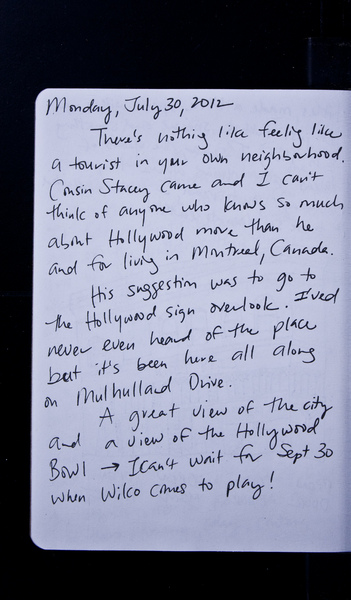 Monday, July 30, 2012
There's nothing like feeling like
a tourist in your own neighborhood.
Cousin Stacey came and I can't
think of anyone who knows so much
about Hollywood more than he
and for living in Montreal, Canada.
His suggestion was to go to
the Hollywood sign overlook. I'ved
never even heard of the place
but it's been here all along
on Mulhulland Drive.
A great view of the city
and a view of the Hollywood
Bowl → I can't wait for Sept 30
when Wilco comes to play!